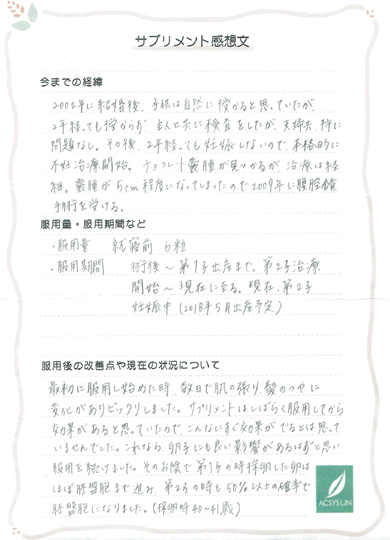 サプリメント感想文
今までの経緯
2002年に結婚後、子供は自然に授かると思っていたが、
2年経っても授からず、主人と共に検査をしたが、夫婦共、特に
問題なし。その後、2年経っても妊娠しないので、本格的に
不妊治療開始。チョコレート嚢腫が見つかるが、治療は継
続。嚢腫が5cm程度になってしまったので2009年に腹腔鏡
手術を受ける。
服用量・服用期間など
・服用量 就寝前 6粒
・服用期間 術後〜第1子出産まで。第2子治療
開始〜現在に至る。現在、第2子
妊娠中(2018年5月出産予定)
服用後の改善点や現在の状況について
最初に服用し始めた時、数日で肌の張り、髪のつやに
変化がありビックリしました。サプリメントはしばらく服用してから
効果があると思っていたのでこんなにすぐ効果がでるとは思って
いませんでした。これなら、卵子にも良い影響があるはずと思い
服用を続けました。そのお陰で第1子の時採卵した卵は
ほぼ胚盤胞まで進み、第2子の時も50%以上の確率で
胚盤胞になりました。(採卵時40〜41歳)
ACSYSUN